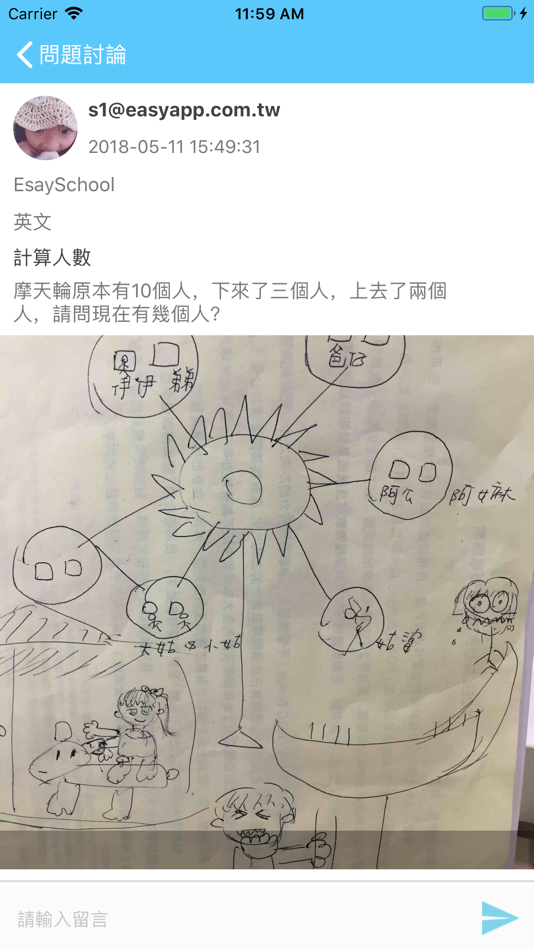 Carrier
11:59 AM
問題討論
s1@easyapp.com.tw
2018-05-11 15:49:31
EsaySchool
英文
計算人數
摩天輪原本有10個人，下來了三個人，上去了兩個
人，請問現在有幾個人?
伊伊 弟弟
爸
阿公 阿嬤
大姑 小姑
姑婆
請輸入留言